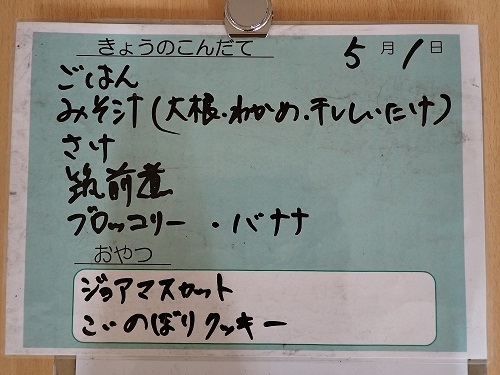 きょうのこんだて 5月1日
ごはん
みそ汁(大根・わかめ・干ししいたけ)
さけ
筑前煮
ブロッコリー ・バナナ
おやつ
ジョアマスカット
こいのぼりクッキー